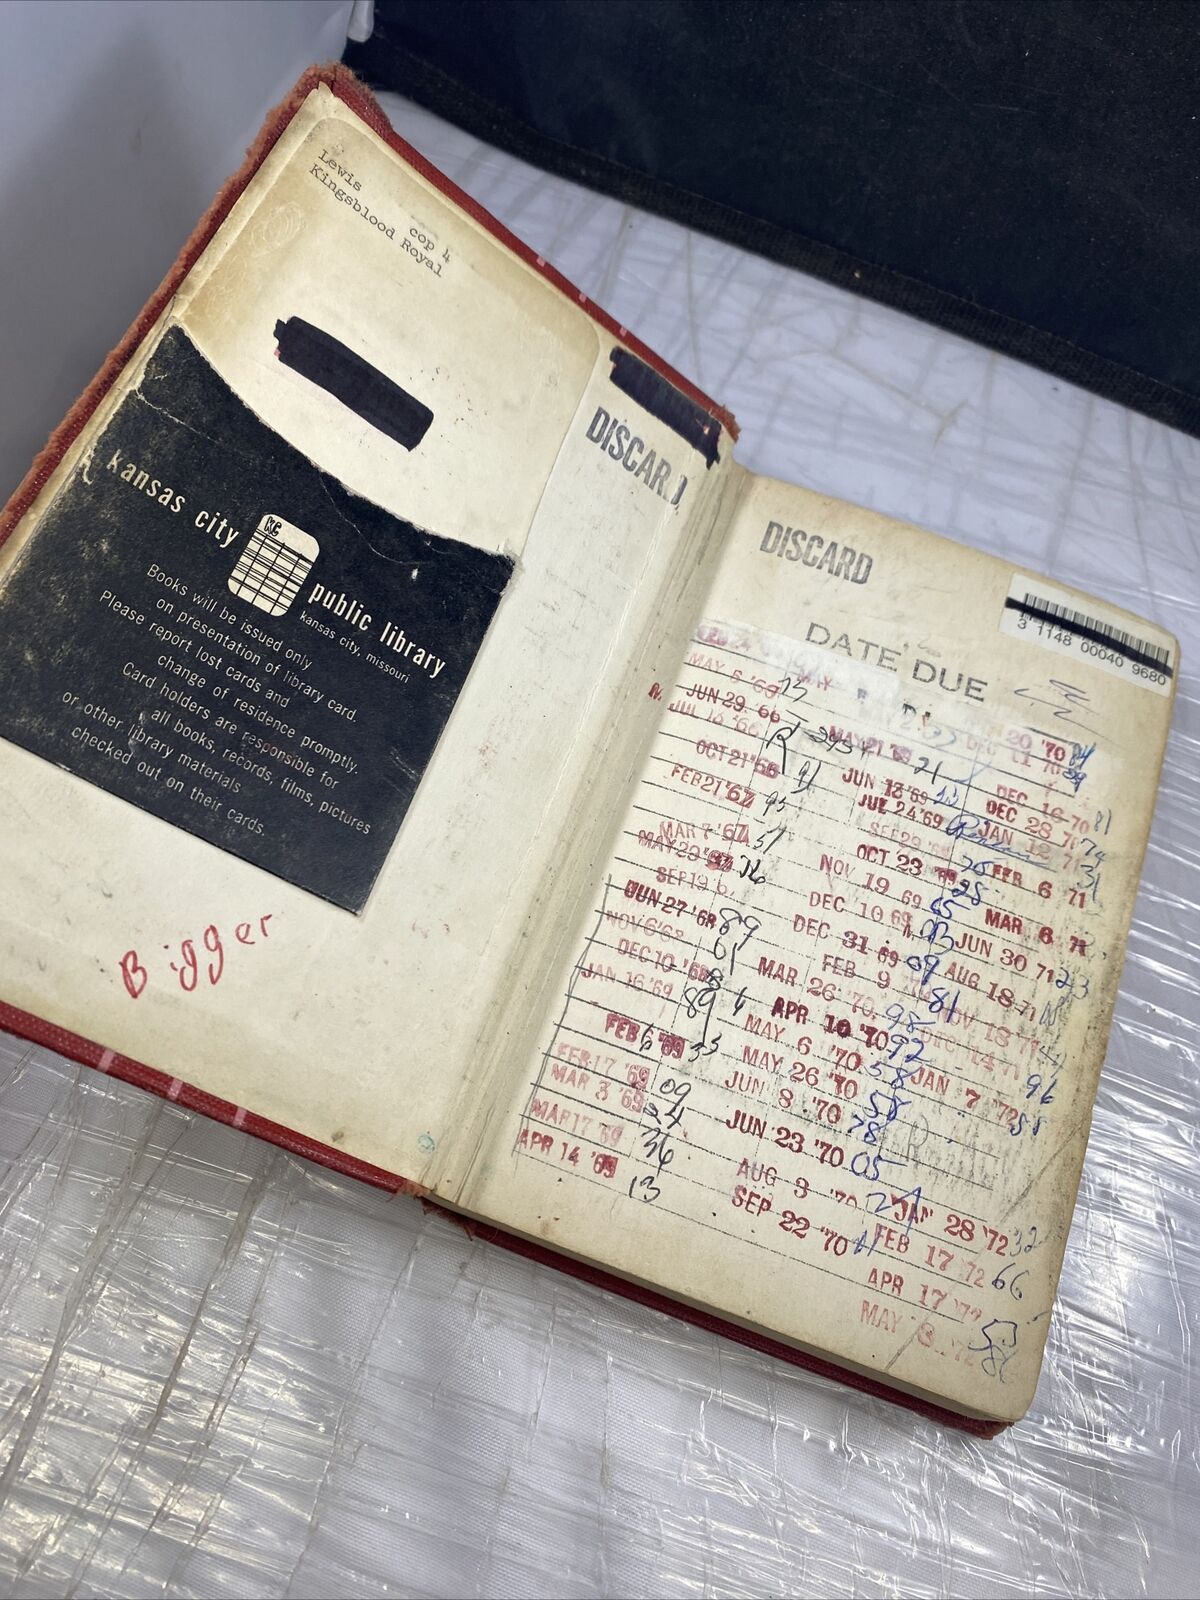 Lewis
cop 4
Kingsblood Royal
DISCARD
kansas city
public library
kansas city, missouri
Books will be issued only
on presentation of library card.
Please report lost cards and
change of residence promptly.
Card holders are responsible for
all books, records, films, pictures
or other library materials
checked out on their cards.
Bigger
DISCARD
3 1148 00040 9680
DATE DUE
MAY 6 '66
JUN 29 66
JUL 16 '66
OCT 21 '66
FEB 21 '67 95
MAR 7 '67 51
MAY 29 '67
SEP 19 67
JUN 27 '68 89
NOV 6 '68 61
DEC 10 '68
JAN 16 '69 89
FEB '69 33
FEB 17 '69 09
MAR 3 '69 24
MAR 17 '69 36
APR 14 '69 13
MAY 21 '69 21
JUN 13 '69
JUL 24 '69
SEP 29 '69
OCT 23 '69 25
NOV 19 69 28
DEC 10 69 65
DEC 31 69
FEB 9 09
MAR 26 '70 81
APR 10 '70 98
MAY 6 '70 92
MAY 26 '70 58
JUN 8 '70 58
JUN 23 '70 78
05
AUG 3 '70 21
SEP 22 '70 11
20 '70 84
DEC 11 70 29
DEC 16 70
DEC 28 70 81
JAN 12 71 74
FEB 6 71 31
MAR 6 71
JUN 30 71 23
AUG 18 71
NOV 18 71
DEC 14 71
JAN 7 '72 96
58
JAN 28 '72 32
FEB 17 '72 66
APR 17 '72
MAY 8 '72 53
86